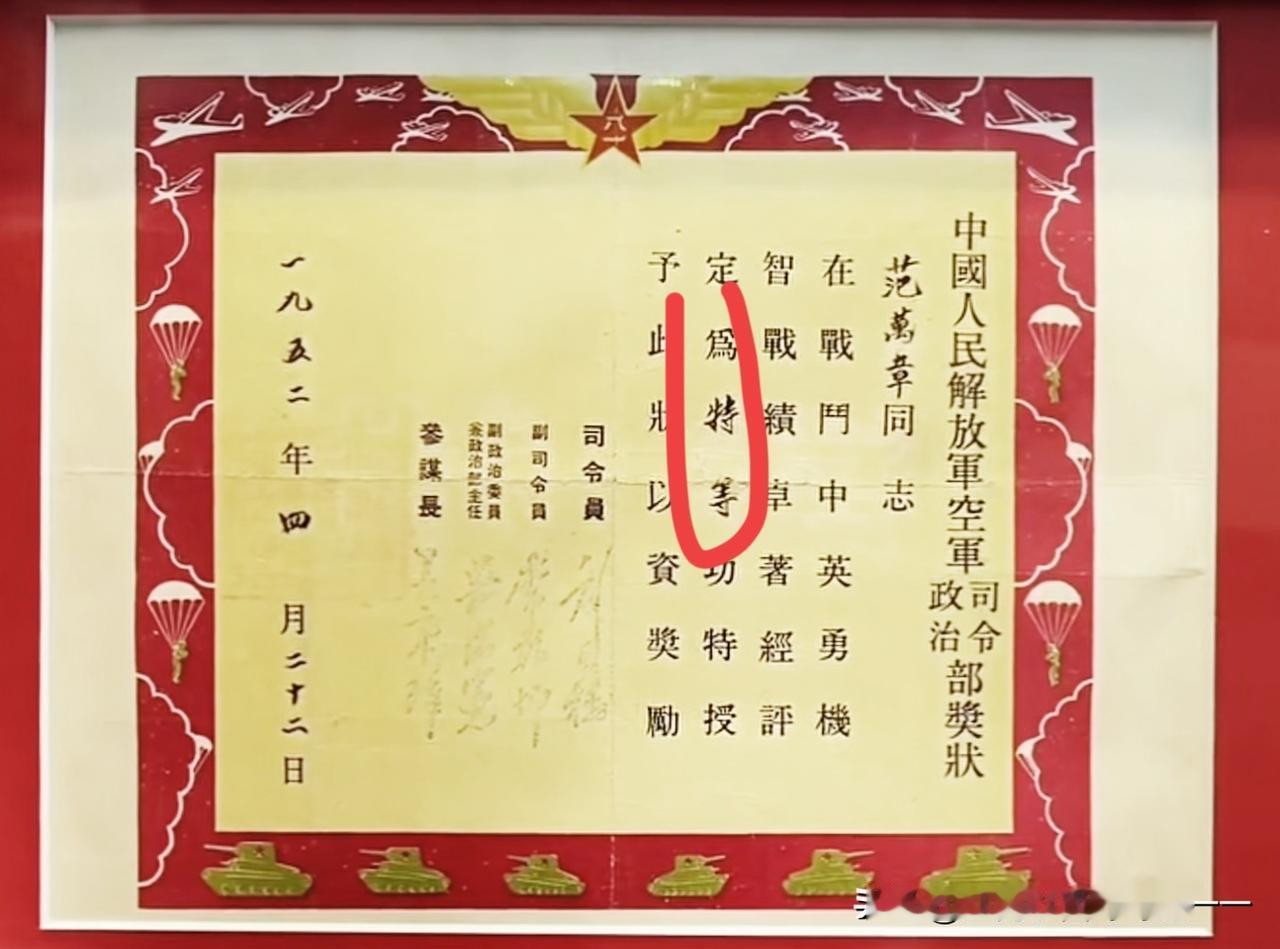 八一
中國人民解放軍空軍司令政治部獎狀
范萬章同志
在戰鬥中英勇機
智戰績卓著經評
定爲特等功特授
予此狀以資獎勵
司令員
副司令員
副政治委員
兼政治部主任
參謀長
一九五二年四月二十二日